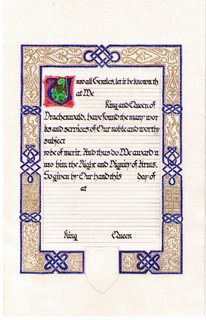 Unto all Gentles, let it be known th
at We
King and Queen of
Drachenwald, have found the many wor
ks and services of Our noble and worthy
subject
to be of merit. And thus do We award u
nto him the Right and Dignity of Arms.
So given by Our hand this day of
at
King Queen